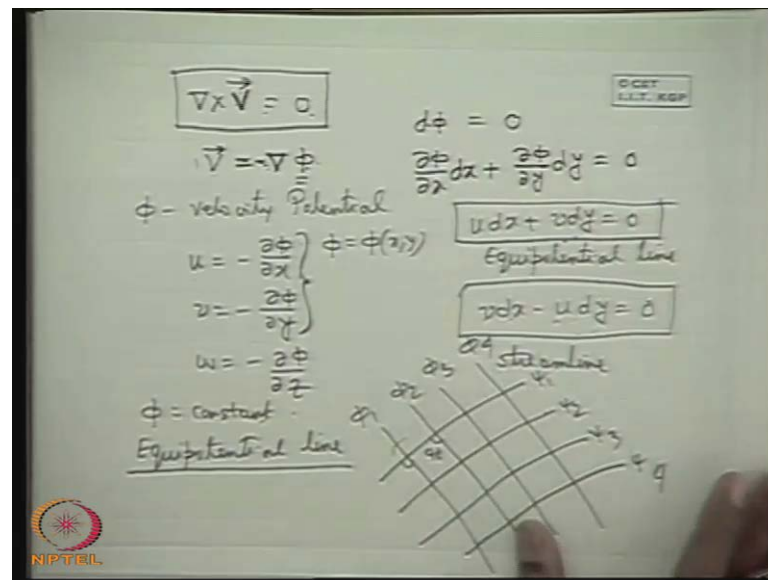 ∇×V⃗ = 0
V⃗ = -∇φ
φ - velocity Potential
u = - ∂φ/∂x
v = - ∂φ/∂y
φ = φ(x,y)
w = - ∂φ/∂z
φ = constant.
Equipotential line
O CET
I.I.T. KGP
dφ = 0
∂φ/∂x dx + ∂φ/∂y dy = 0
udx + vdy = 0
Equipotential line
vdx - udy = 0
streamline
φ1 φ2 φ3 φ4
ψ1
ψ2
ψ3
ψ4
90
NPTEL